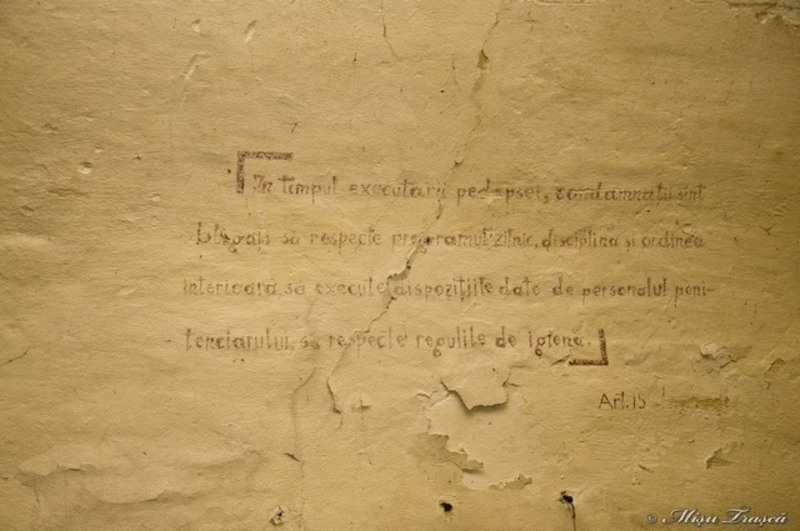 In timpul executării pedepsei, condamnații sînt
obligați să respecte programul zilnic, disciplina și ordinea
interioară, să execute dispozițiile date de personalul peni-
tenciarului, să respecte regulile de igienă.
Art. 15
© Mișu Trașcă